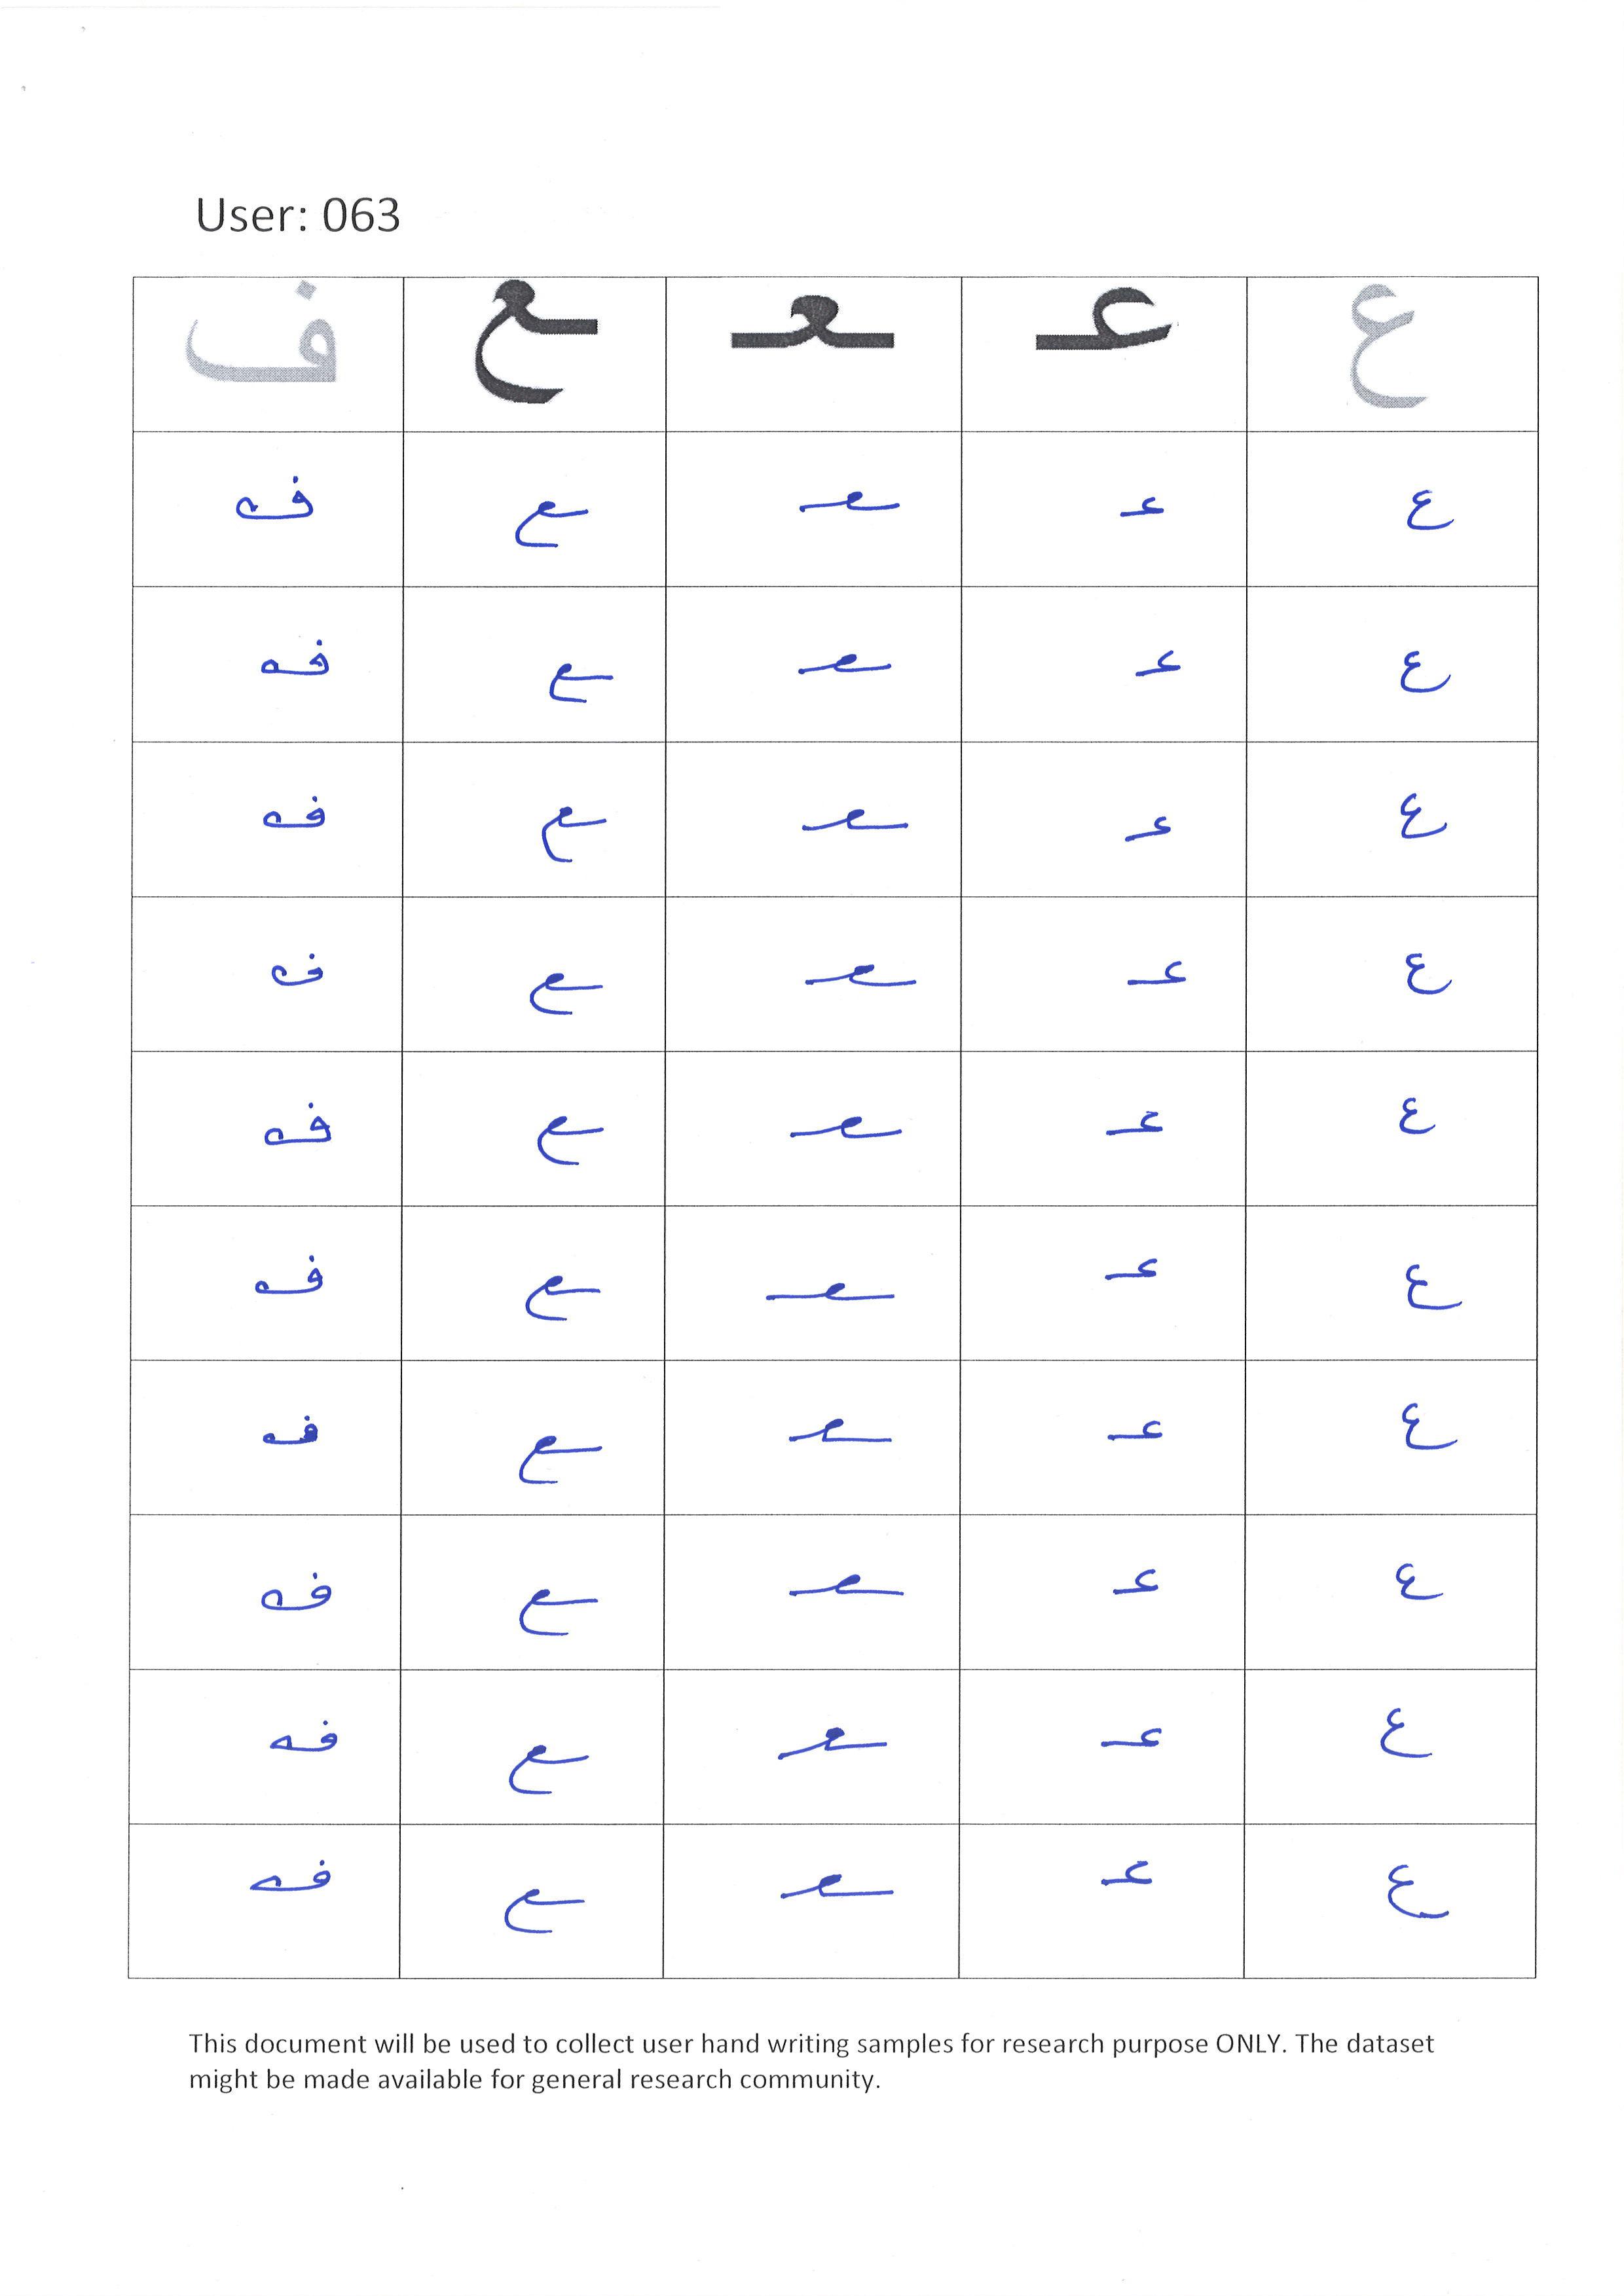 User: 063
ع عـ ـعـ ـع ف
ع عـ ـعـ ـع ف
ع عـ ـعـ ـع ف
ع عـ ـعـ ـع ف
ع عـ ـعـ ـع ف
ع عـ ـعـ ـع ف
ع عـ ـعـ ـع ف
ع عـ ـعـ ـع ف
ع عـ ـعـ ـع ف
ع عـ ـعـ ـع ف
ع عـ ـعـ ـع ف
This document will be used to collect user hand writing samples for research purpose ONLY. The dataset
might be made available for general research community.